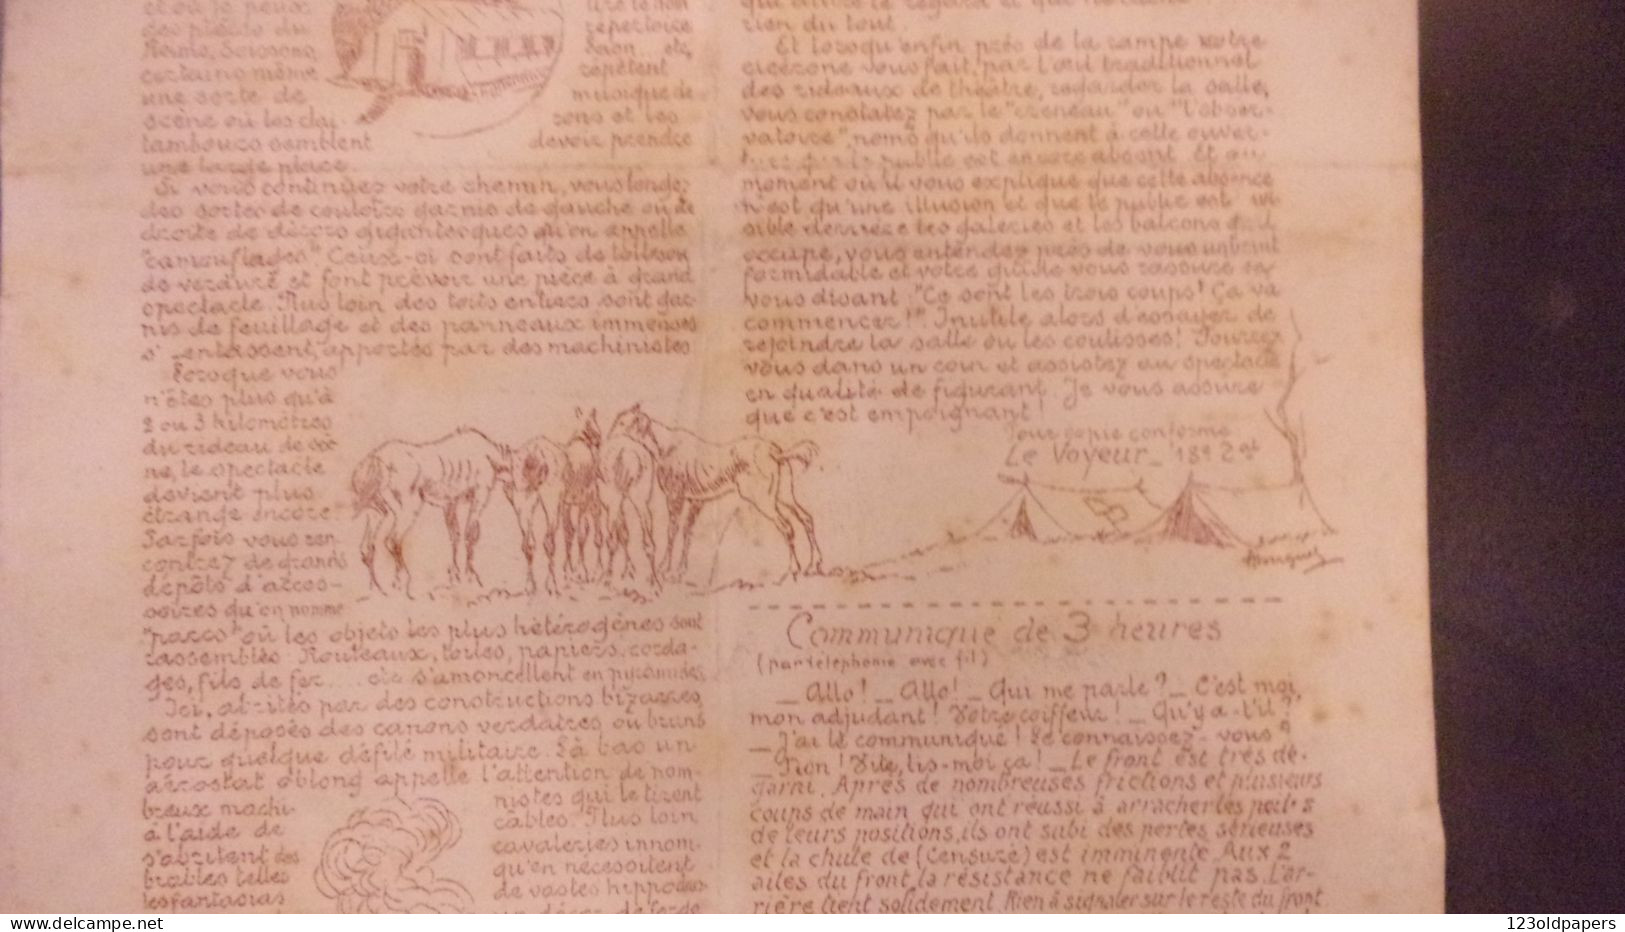 et où je peux
des pieds du
Reims, Soissons,
certains même
une sorte de
scène où les clai-
tambours semblent
une large place.
répertoire
Laon, etc,
répètent
musique de
sons et les
devoir prendre
Si vous continuez votre chemin, vous longez
des sortes de couloirs garnis de gauche ou de
droite de décors gigantesques qu'on appelle
"camouflages". Ceux-ci sont faits de
de verdure et font prévoir une pièce à grand
spectacle. Plus loin des toits entiers sont gar-
nis de feuillage et des panneaux immenses
s'entassent, apportés par des machinistes
Lorsque vous
n'êtes plus qu'à
2 ou 3 kilomètres
du rideau de scè
ne, le spectacle
devient plus
étrange encore.
Parfois vous ren
contrez de grands
dépôts d'acces-
soires qu'on nomme
"parcs" où les objets les plus hétérogènes sont
rassemblés. Rouleaux, toiles, papiers, corda-
ges, fils de fer.... etc s'amoncellent en pyramides.
Ici, abrités par des constructions bizarres,
sont déposés des canons verdâtres ou bruns
pour quelque défilé militaire. Là bas un
aérostat oblong appelle l'attention de nom-
breux machi-
à l'aide de
s'abritent des
brables telles
les fantasias
nistes qui le tirent
cables. Plus loin,
cavaleries innom-
qu'en nécessitent
de vastes hippodro-
rien du tout.
Et lorsqu'enfin près de la rampe votre
cicérone vous fait, par l'œil traditionnel
des rideaux de théâtre, regarder la salle,
vous constatez par le "créneau" ou "l'obser-
vatoire", noms qu'ils donnent à cette ouver-
ture que le public est encore absent. Et au
moment où il vous explique que cette absence
n'est qu'une illusion et que le public est invi
sible derrière les galeries et les balcons qu'il
occupe, vous entendez près de vous un bruit
formidable et votre guide vous rassure en
vous disant: "Ce sont les trois coups! Ça va
commencer!". Inutile alors d'essayer de
rejoindre la salle ou les coulisses! Fourrez
vous dans un coin et assistez au spectacle
en qualité de figurant. Je vous assure
que c'est empoignant!
Pour copie conforme
Le Voyeur_ 18e
Communiqué de 3 heures
(par téléphonie avec fil)
_ Allo! _ Allo! _ Qui me parle? _ C'est moi,
mon adjudant! Votre coiffeur! _ Qu'y a-t'il?
_ J'ai le communiqué! Le connaissez-vous?
_ Non! Vite, lis-moi ça! _ Le front est très dé-
garni. Après de nombreuses frictions et plusieurs
coups de main qui ont réussi à arracher les poils
de leurs positions, ils ont subi des pertes sérieuses
et la chute de (Censuré) est imminente. Aux 2
ailes du front, la résistance ne faiblit pas. L'ar-
rière tient solidement. Rien à signaler sur le reste du front.
123oldpapers